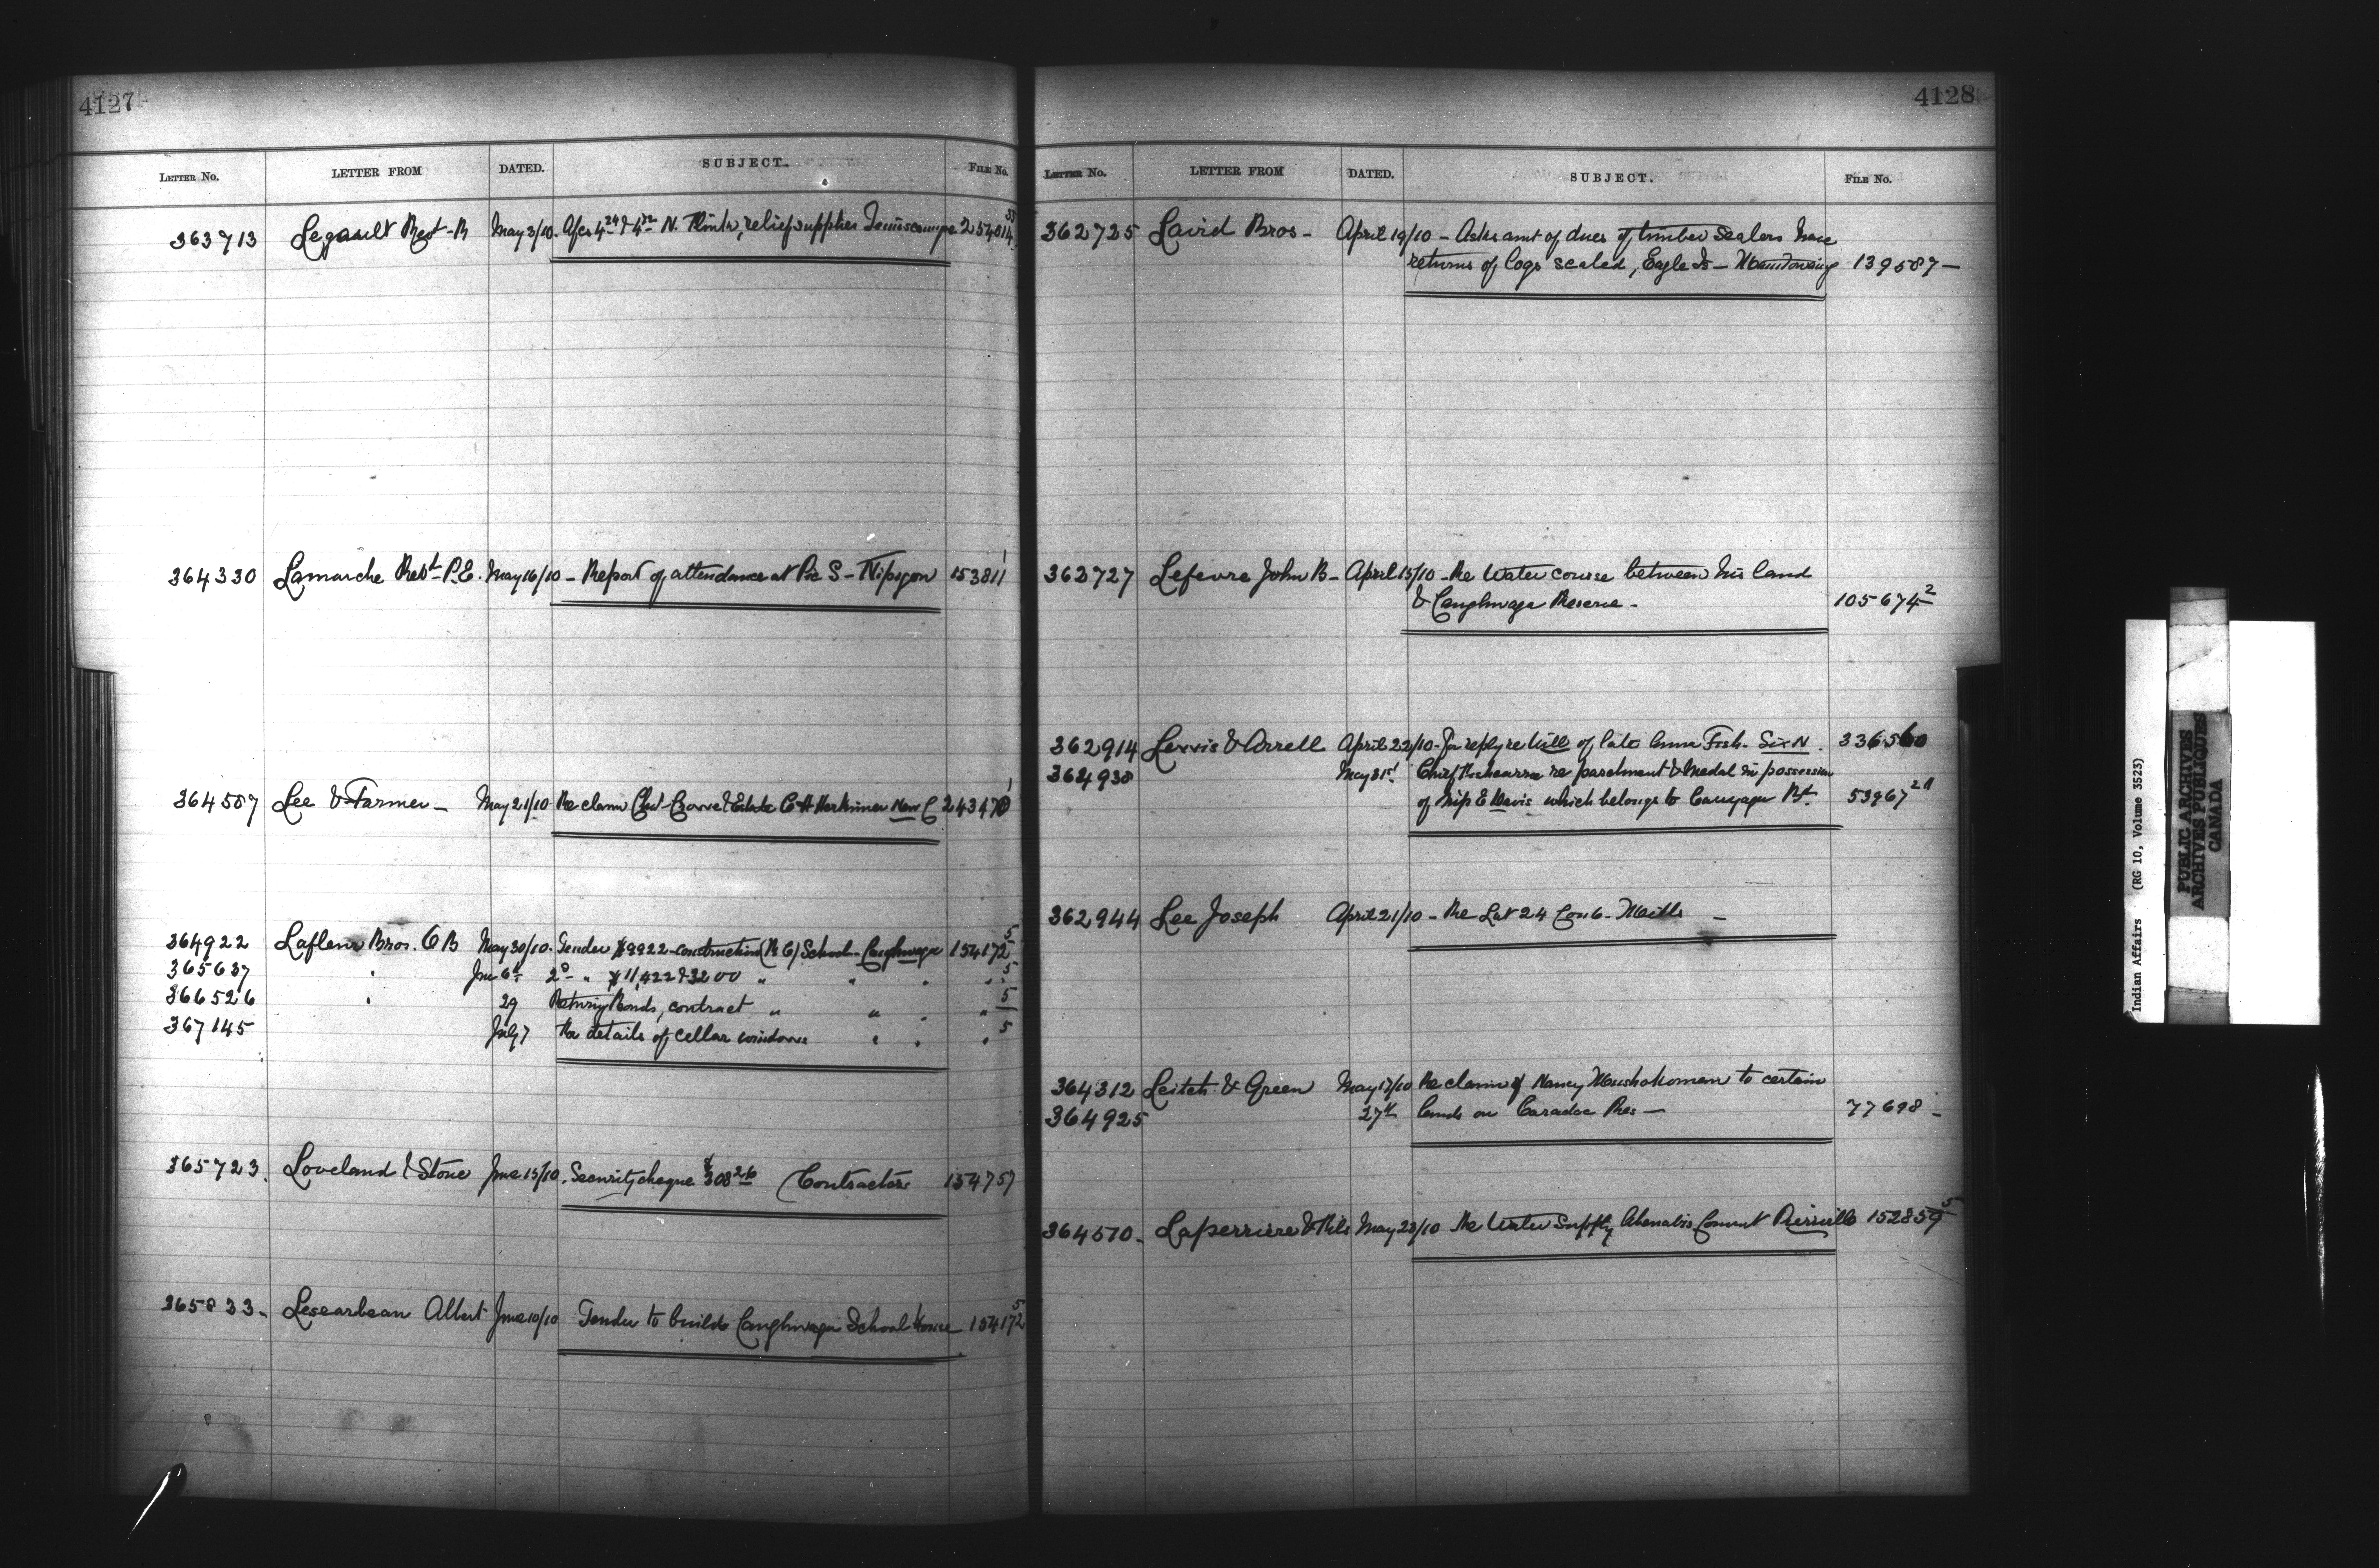 4127
LETTER No. LETTER FROM DATED. SUBJECT. FILE No.
363713 Legault Revd B May 3/10. N. relief supplies Temiscamgue 254014 33
364330 Lamarche Revd P.E. May 16/10 – Report of attendance at Pic S – Nipigon 153811 1
364587 Lee & Farmer – May 21/10 Re claim Estate C H Herkimer New C 243470 1
364922 Lafleur Bros. C B May 30/10. Tender $9922 construction (R C) School – Caughnawaga 154172 5
365637 " June 6th 2d " $11,422 & 3200 " " " " 5
366526 " 29 Returning Bonds, contract " " " " 5
367145 July 7 Re details of cellar windows " " " 5
365723. Loveland & Stone June 13/10. Security cheque $308 26 (Contractors 154757
365833. Albert June 10/10 Tender to build Caughnawaga School House – 154172 5
4128
LETTER No. LETTER FROM DATED. SUBJECT. FILE No.
362725 Laird Bros – April 19/10 – Asks amt of dues of timber Sealers have
returns of logs scaled, Eagle Is – 139587 –
362727 Lefevre John B – April 15/10 – Re Water course between his land
& Caughnawaga Reserve – 105674 2
362914 Lewis & Arrell April 22/10 – For reply re Will of late Anna Fish – Six N. 336560
364938 May 31st Chief re parchment & medal in possession
of Miss E Davis which belongs to Cayuga 53967 2
362944 Lee Joseph April 21/10 – Re Lot 24 Con 6 – Mills –
364312 Leitch & Green May 17/10 Re claim of Nancy Muskokoman to certain
364925 27th lands on Caradoc Res – 77698 –
364570 – Laperriere & Fils May 23/10 Re Water Supply Abenakis Convent Pierreville 152859 5
Indian Affairs (RG 10, Volume 3523)
PUBLIC ARCHIVES
ARCHIVES PUBLIQUES
CANADA